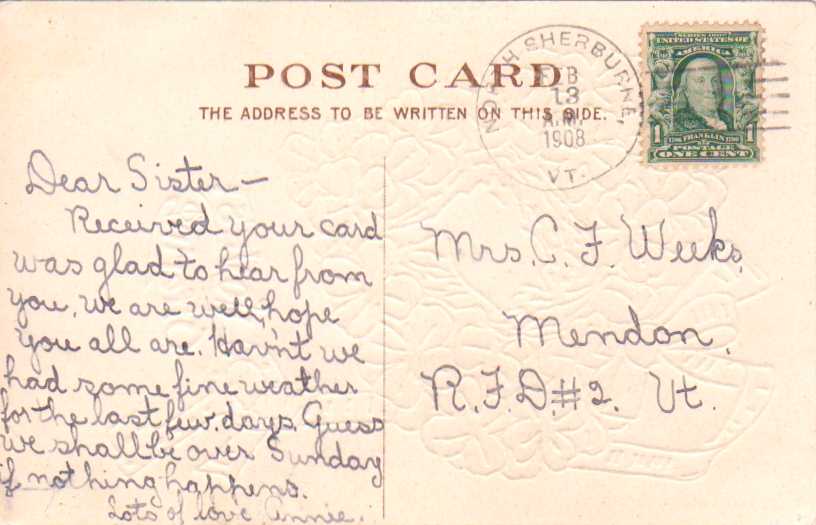 POST CARD
THE ADDRESS TO BE WRITTEN ON THIS SIDE.
NORTH SHERBURNE,
FEB
13
A.M.
1908
VT.
SERIES 1902
UNITED STATES OF
AMERICA
1 FRANKLIN 1
POSTAGE
ONE CENT
Dear Sister—
Received your card
was glad to hear from
you, we are well, hope
you all are. Hav'nt we
had some fine weather
for the last few days. Guess
we shall be over Sunday
if nothing happens.
Lots of love Annie.
Mrs. C. F. Weeks,
Mendon,
R.F.D.#2. Vt.